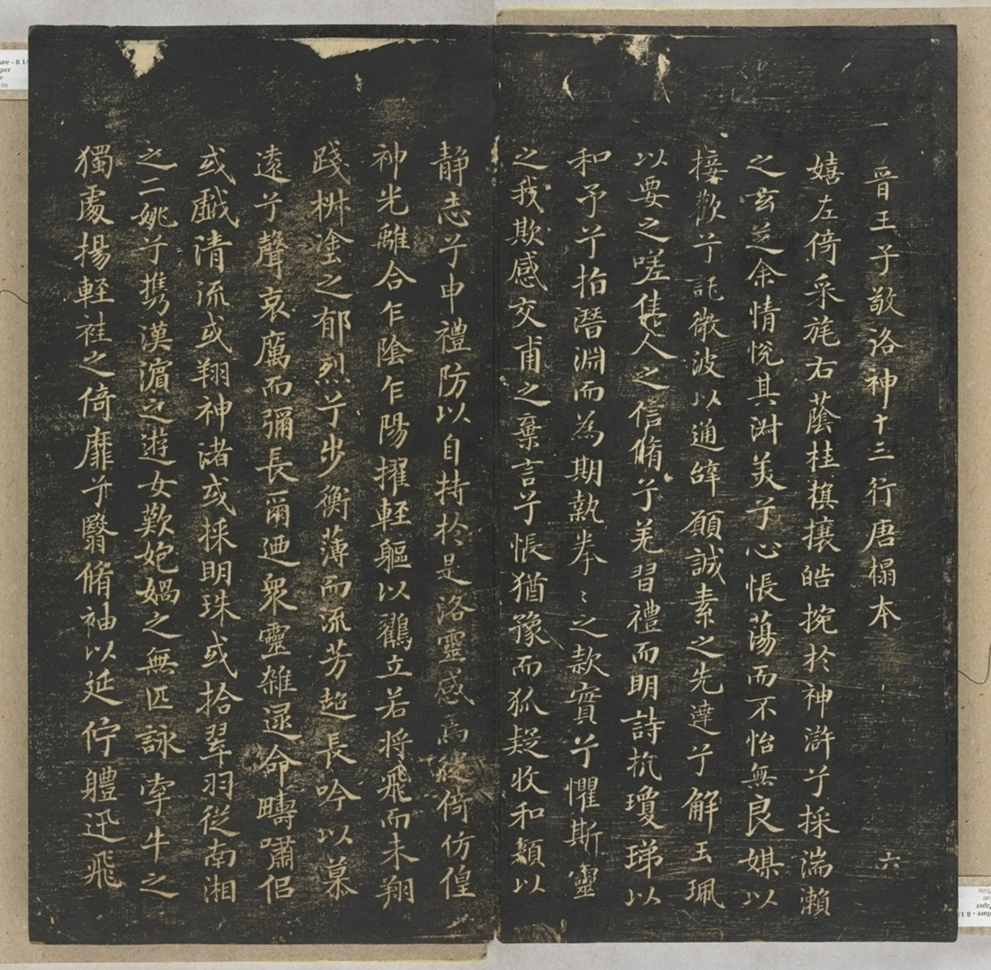 晉王子敬洛神十三行唐搨本
六
嬉左倚采旄右蔭桂旗攘皓捥於神滸兮採湍瀨
之玄芝余情悅其淑美兮心悵蕩而不怡無良媒以
接歡兮託微波以通辭願誠素之先達兮解玉珮
以要之嗟佳人之信脩兮羌習禮而明詩抗瓊珶以
和予兮指潛淵而為期執拳〻之款實兮懼斯靈
之我欺感交甫之棄言兮悵猶豫而狐疑收和顏以
靜志兮申禮防以自持於是洛靈感焉徙倚仿偟
神光離合乍陰乍陽擢輕軀以鶴立若將飛而未翔
踐椒塗之郁烈兮步衡薄而流芳超長吟以慕
遠兮聲哀厲而彌長爾迺眾靈雜遝命疇嘯侶
或戲清流或翔神渚或採明珠或拾翠羽從南湘
之二姚兮攜漢濱之遊女歎匏媧之無匹詠牽牛之
獨處揚輕袿之倚靡兮翳脩袖以延佇體迅飛